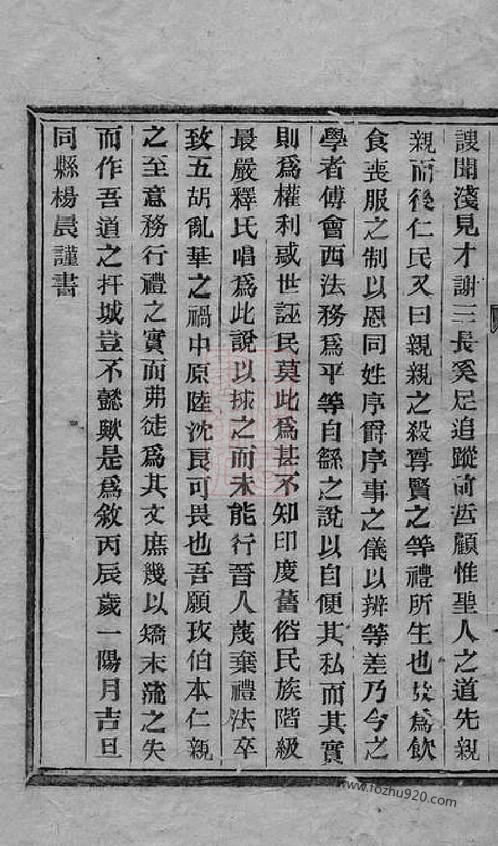 謏聞淺見才謝三長奚足追蹤前哲顧惟聖人之道先親
親而後仁民又曰親親之殺尊賢之等禮所生也故爲飲
食喪服之制以恩同姓序爵序事之儀以辨等差乃今之
學者傅會西法務爲平等自繇之說以自便其私而其實
則爲權利惑世誣民莫此爲甚不知印度舊俗民族階級
最嚴釋氏唱爲此說以捄之而未能行晉人蔑棄禮法卒
致五胡亂華之禍中原陸沈良可畏也吾願攷伯本仁親
之至意務行禮之實而弗徒爲其文庶幾以矯末流之失
而作吾道之扞城豈不懿歟是爲敘丙辰歲一陽月吉旦
同縣楊晨謹書
www.fozhu920.com